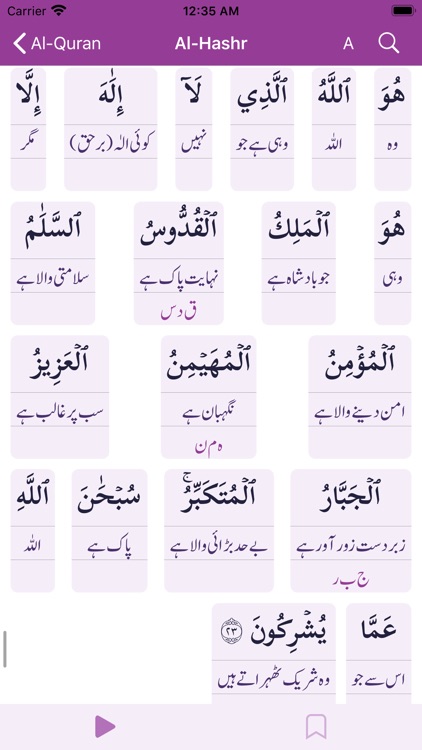 Carrier 12:35 AM
Al-Quran Al-Hashr A
هُوَ ٱللَّهُ ٱلَّذِي لَآ إِلَٰهَ إِلَّا
وہ اللہ وہی ہے جو نہیں کوئی الٰہ (برحق) مگر
هُوَ ٱلۡمَلِكُ ٱلۡقُدُّوسُ ٱلسَّلَٰمُ
وہی جو بادشاہ ہے نہایت پاک ہے سلامتی والا ہے
ق د س
ٱلۡمُؤۡمِنُ ٱلۡمُهَيۡمِنُ ٱلۡعَزِيزُ
امن دینے والا ہے نگہبان ہے سب پر غالب ہے
ه م ن
ٱلۡجَبَّارُ ٱلۡمُتَكَبِّرُۚ سُبۡحَٰنَ ٱللَّهِ
زبردست زور آور ہے بے حد بڑائی والا ہے پاک ہے اللہ
ج ب ر
عَمَّا يُشۡرِكُونَ ٢٣
اس سے جو وہ شریک ٹھہراتے ہیں